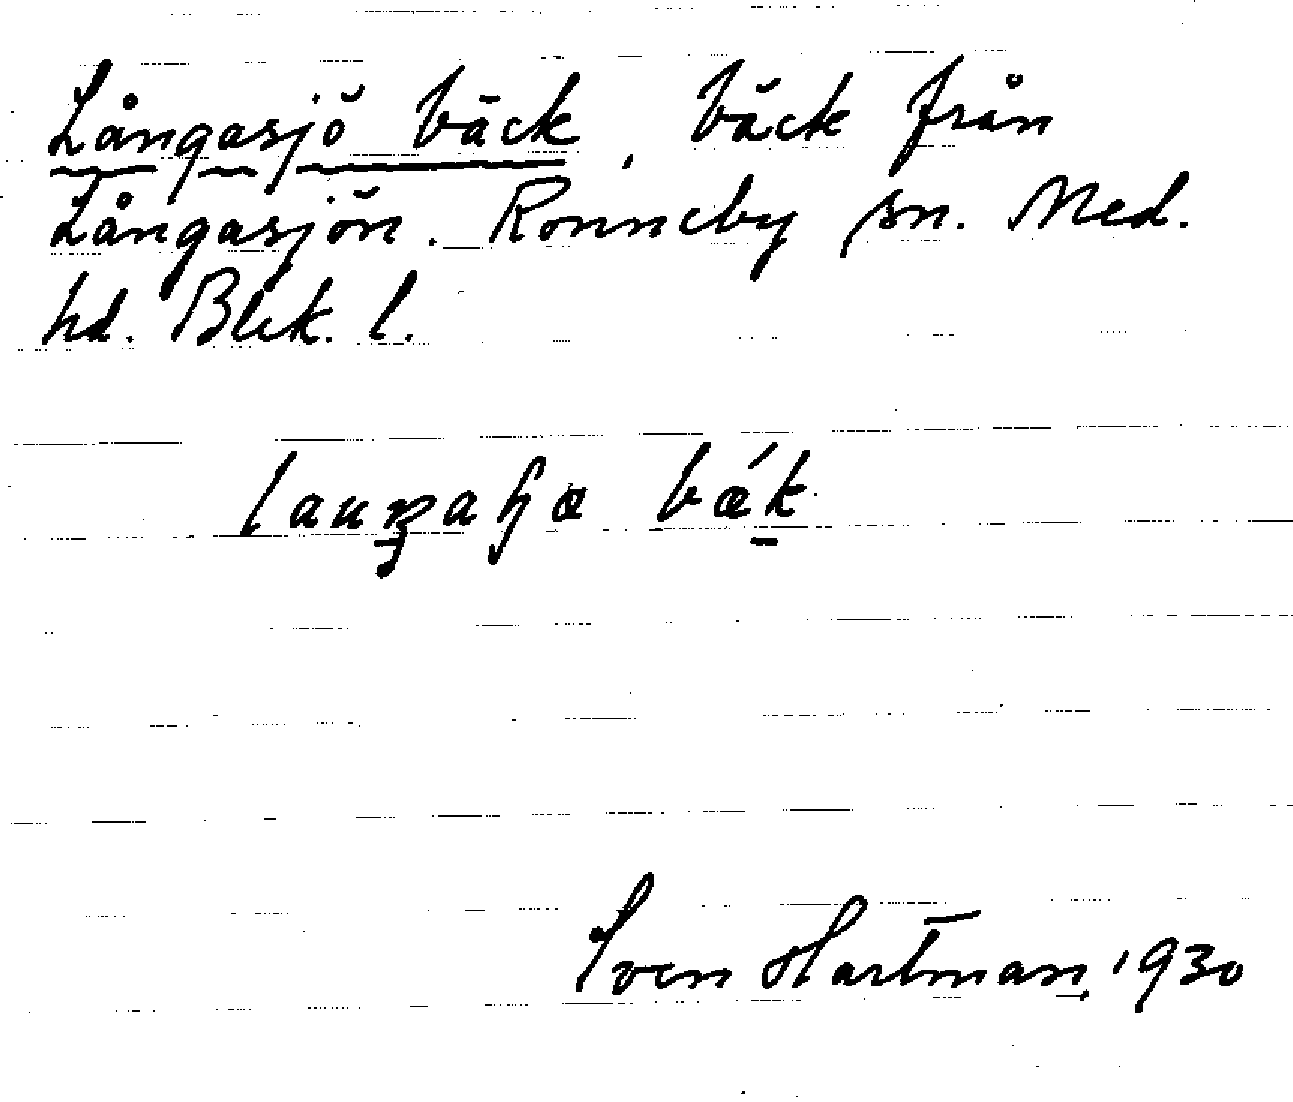 Långasjö bäck, bäck från
Långasjön. Ronneby sn. Med.
hd. Blek. l.
bǽk
Sven Hartman 1930